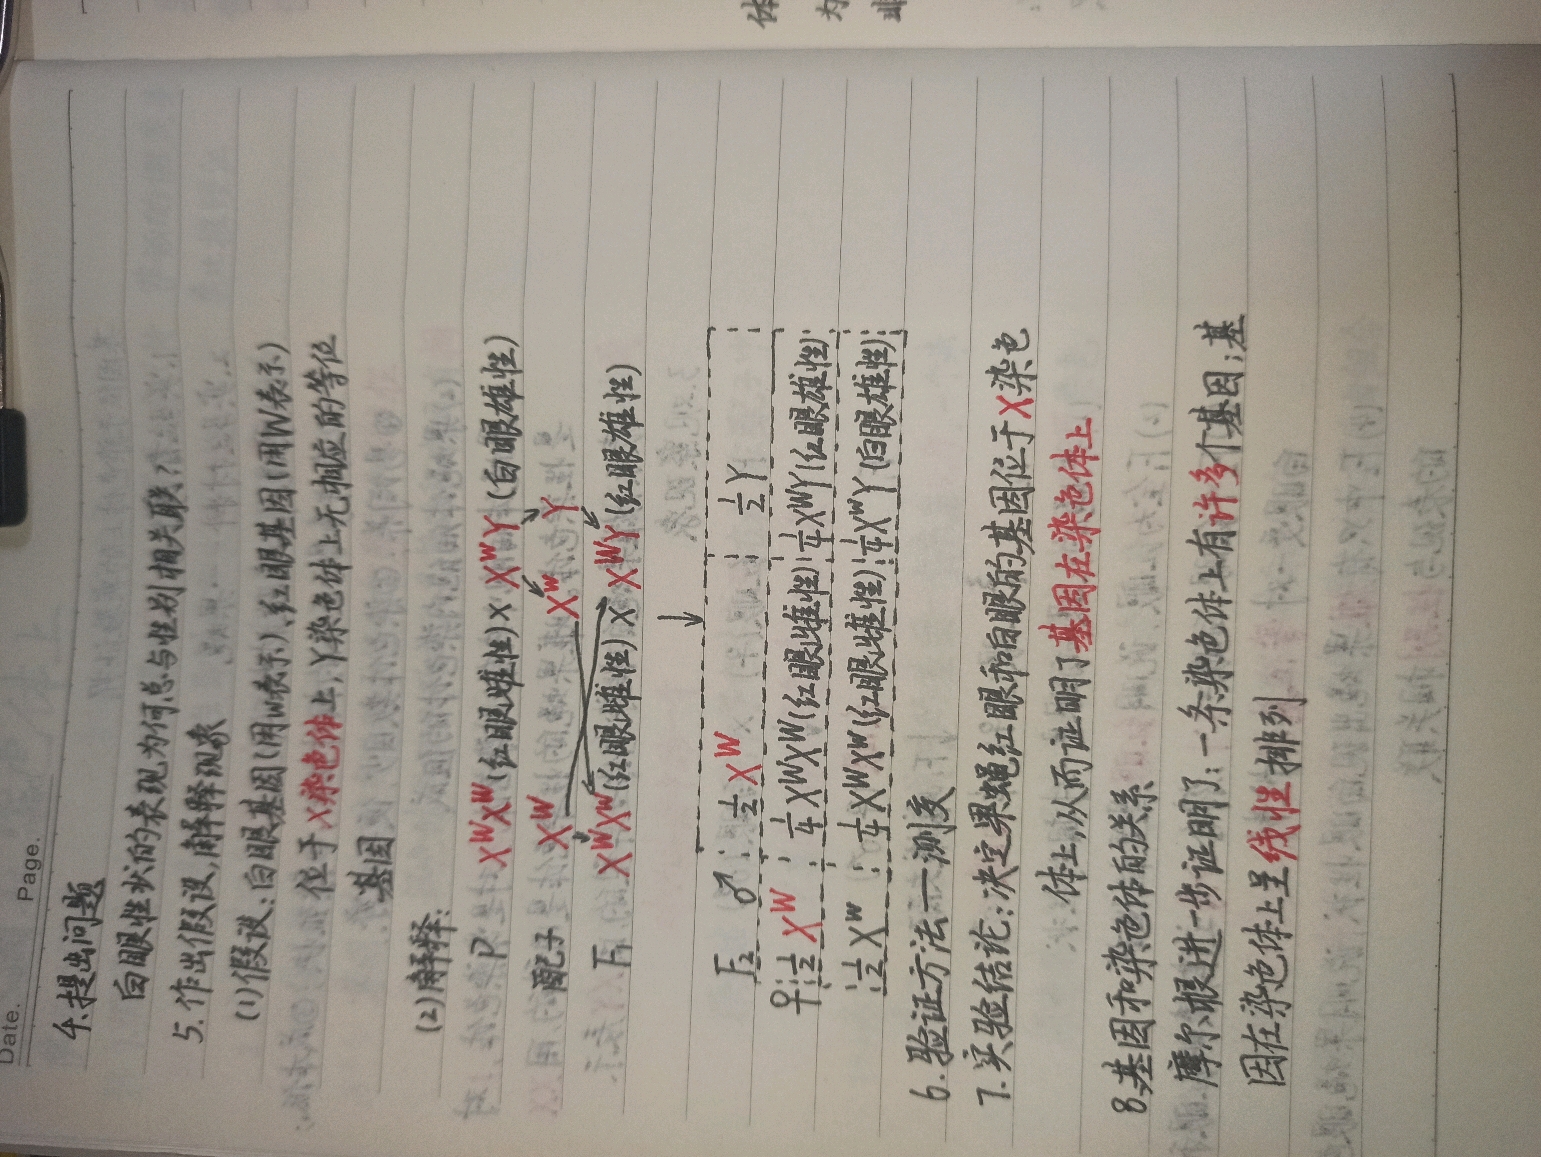 Date.
Page.
4.提出问题
白眼性状的表现为何总与性别相关联?
5.作出假设,解释现象
(1)假设:白眼基因(用w表示)、红眼基因(用W表示)
位于X染色体上,Y染色体上无相应的等位
基因
(2)解释:
P XᵂXᵂ(红眼雌性)×XʷY(白眼雄性)
配子 Xᵂ Xʷ Y
F₁ XᵂXʷ(红眼雌性)×XᵂY(红眼雄性)
↓
F₂ ♂ ½Xᵂ ½Y
♀ ½Xᵂ ¼XᵂXᵂ(红眼雌性) ¼XᵂY(红眼雄性)
½Xʷ ¼XᵂXʷ(红眼雌性) ¼XʷY(白眼雄性)
6.验证方法——测交
7.实验结论:决定果蝇红眼和白眼的基因位于X染色
体上,从而证明了基因在染色体上
8.基因和染色体的关系
摩尔根进一步证明了:一条染色体上有许多个基因;基
因在染色体上呈线性排列